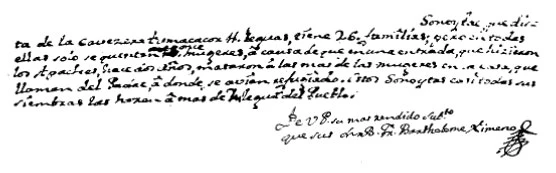 Sonoytac que dis-
ta de la Cavezera Tumacacori 11 leguas, tiene 26 familias; pero en todas
ellas solo se quentan nueve mugeres, à causa de que en una entrada, que hizieron
los Apaches, hace dos Años, mataron à las mas de las mugeres en la casa, que
llaman del Padre, à donde se avian refugiado. Estos Sonoytas casi todas sus
siembras las hazen à mas de legua del Pueblo.
De V P. su mas rendido Subto
que sus Bartholome Ximeno